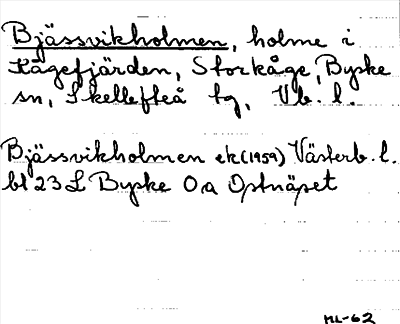 Bjässvikholmen, holme i
Kågefjärden, Storkåge, Byske
sn, Skellefteå tg, Vb. l.
Bjässvikholmen ek (1959) Västerb. l.
bl 23 L Byske O a Ostnäset
ML-62